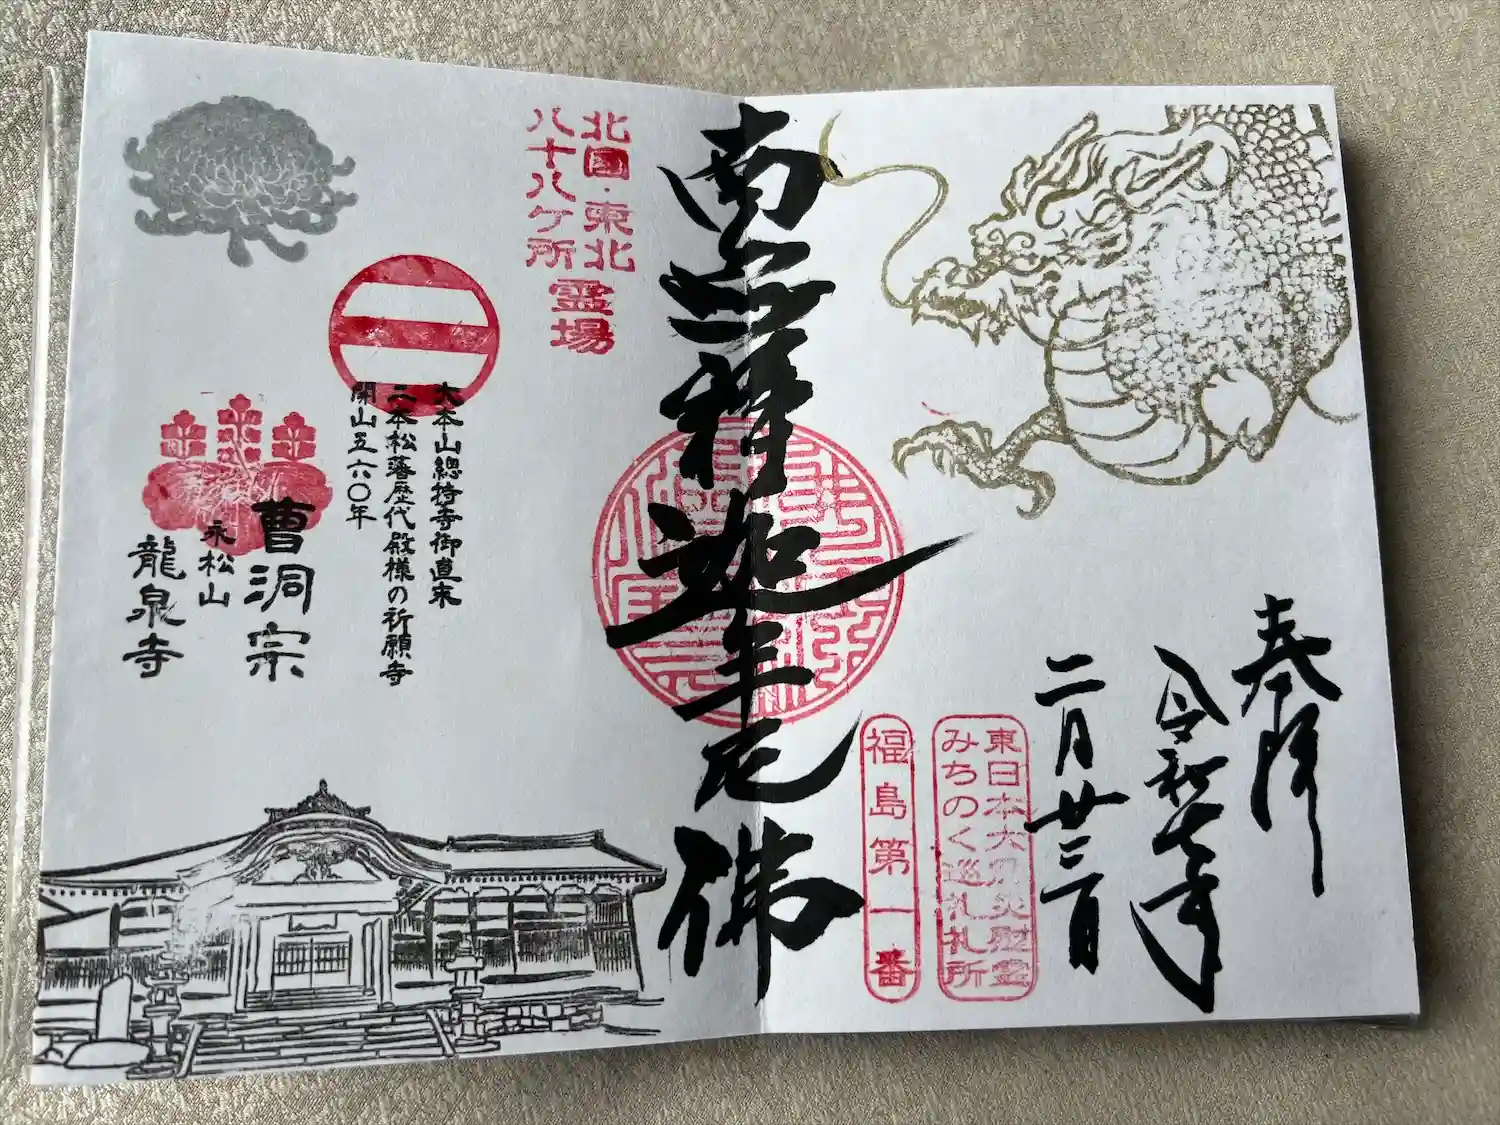 奉拝
令和七年
二月廿三日
東日本大震災慰霊
みちのく巡礼札所
福島第一番
南無釋迦牟尼佛
北国・東北
八十八ケ所
霊場
大本山總持寺御直末
二本松藩歴代殿様の祈願寺
開山五六〇年
曹洞宗
永松山
龍泉寺